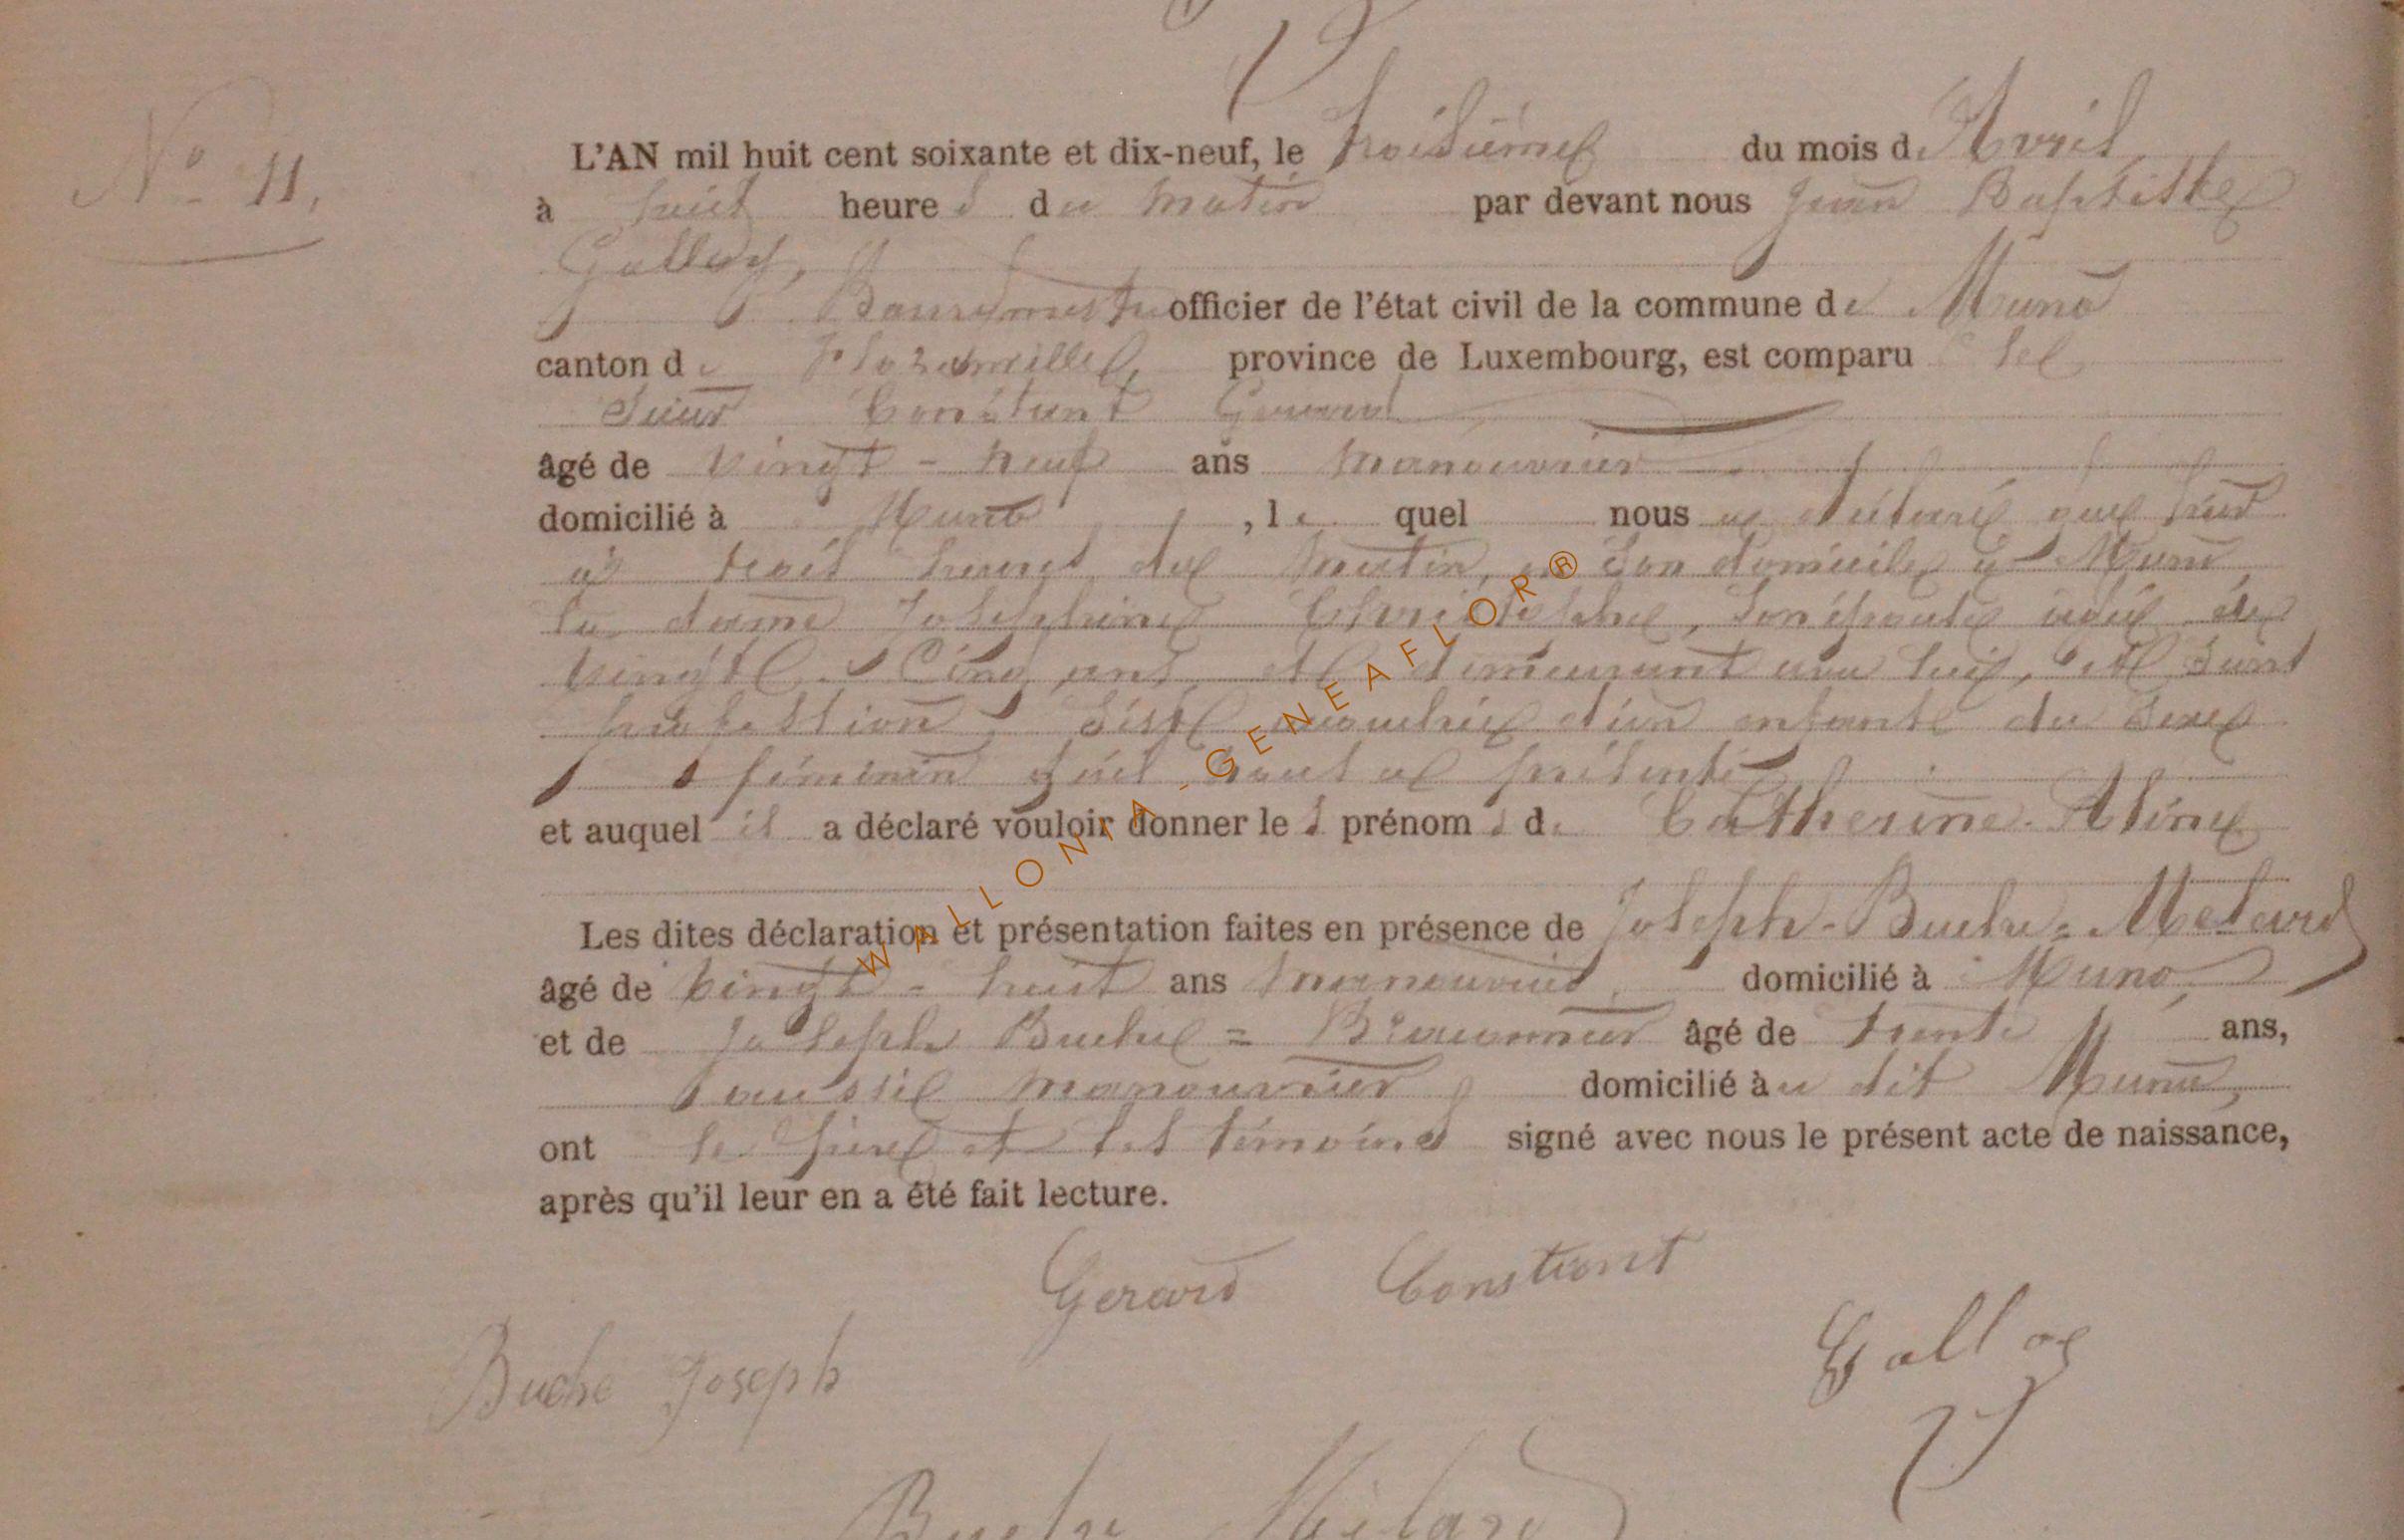 L'AN mil huit cent soixante et dix-neuf, le troisième du mois d'Avril
N° 11.
à huit heures du matin par devant nous Jean Baptiste
Galloy,
Bourgmestre officier de l'état civil de la commune de Muno
canton de Florenville, province de Luxembourg, est comparu le
Sieur Constant Gerard
âgé de vingt-neuf ans manouvrier
domicilié à Muno, lequel nous a déclaré que
à trois heures du matin, en son domicile à Muno,
la dame Joséphine Christophe, son épouse âgée de
vingt-cinq ans et demeurant avec lui, et sans
profession, s'est accouchée d'un enfant du sexe
féminin qu'il nous a présenté
et auquel il a déclaré vouloir donner les prénoms de Catherine-Aline
WALLONIA-GENEAFLOR®
Les dites déclaration et présentation faites en présence de Joseph-Buche=Melard
âgé de vingt-huit ans manouvrier, domicilié à Muno,
et de Joseph Buche = âgé de trente ans,
aussi manouvrier domicilié au dit Muno,
ont le père et les témoins signé avec nous le présent acte de naissance,
après qu'il leur en a été fait lecture.
Gerard Constant
Buche Joseph
Galloy
Buche Mélard